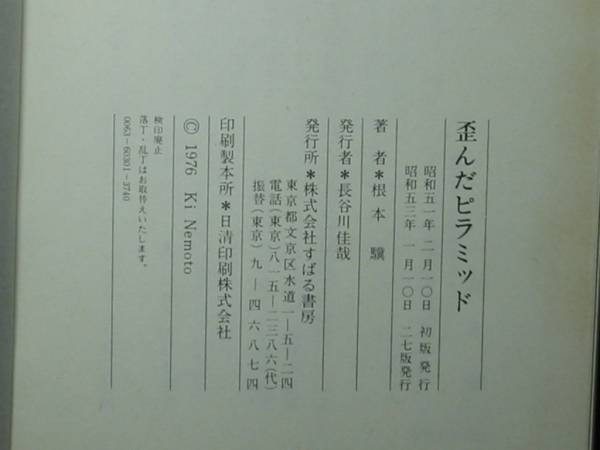 歪んだピラミッド
昭和五一年 二月一〇日 初版発行
昭和五三年 一月一〇日 二七版発行
著者＊根本 驥
発行者＊長谷川佳哉
発行所＊株式会社すばる書房
東京都文京区水道一―五―二四
電話(東京)八一五―二三八六(代)
振替(東京)九―四六八七四
印刷製本所＊日清印刷株式会社
© 1976 Ki Nemoto
検印廃止
落丁・乱丁はお取替えいたします。
0063-60301-3740